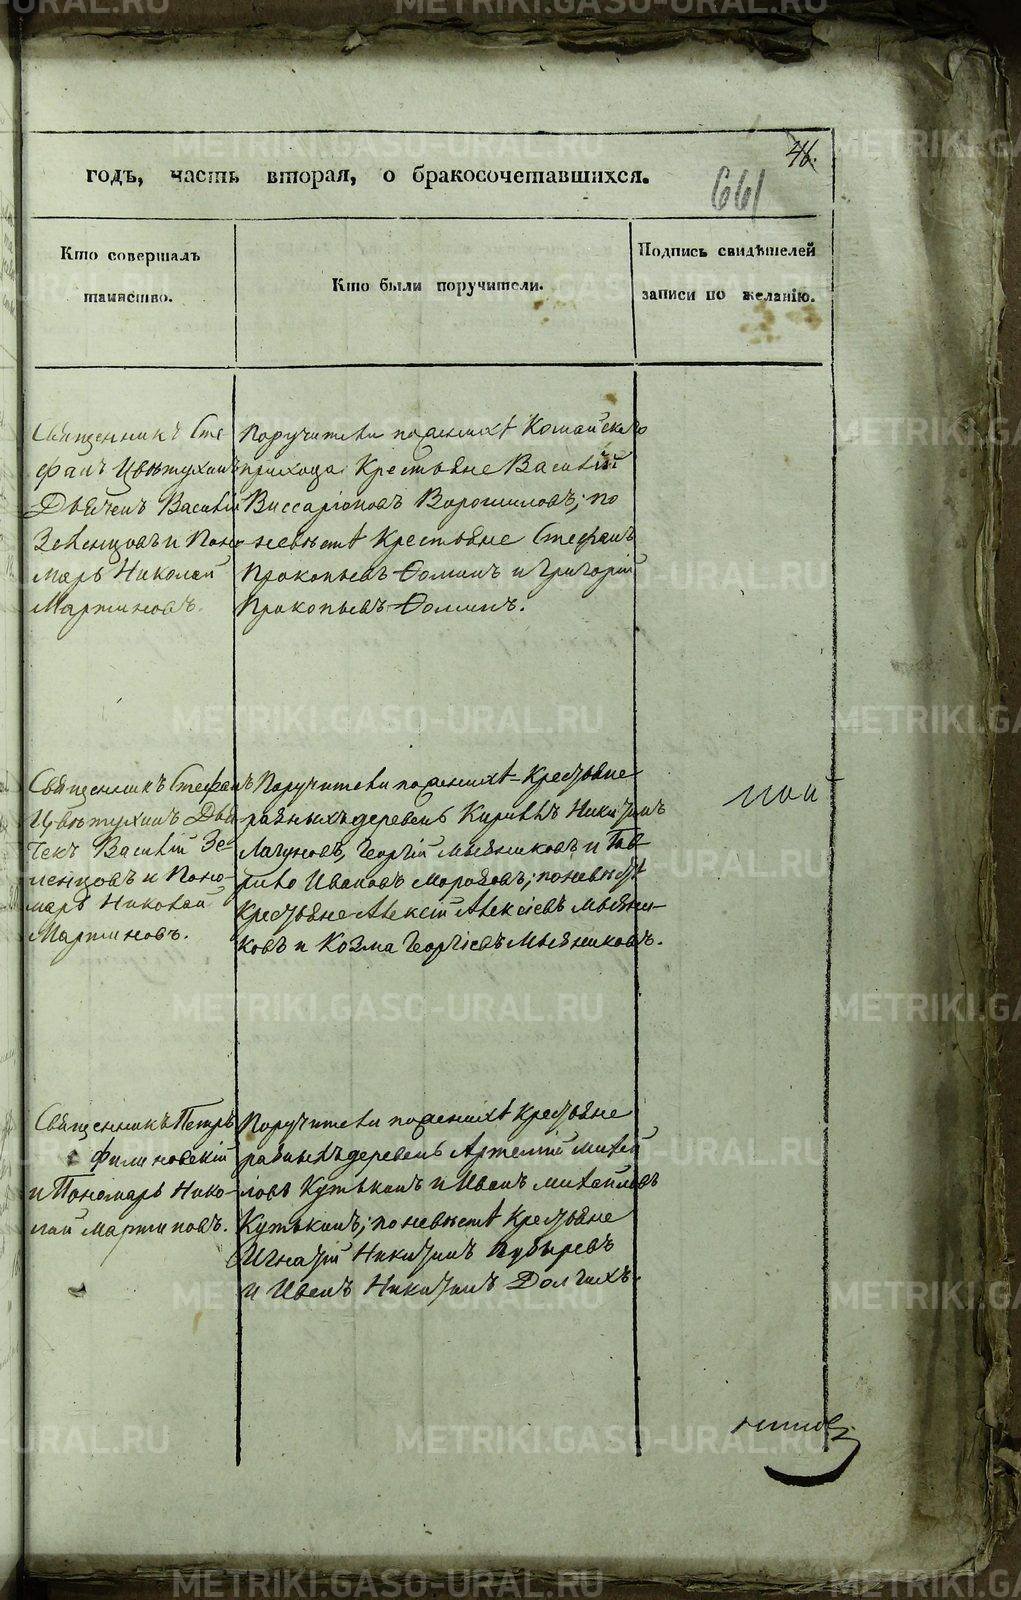 46.
661
годъ, часть вторая, о бракосочетавшихся.
Кто совершалъ
таинство.
Кто были поручители.
Подпись свидѣтелей
записи по желанію.
Священникъ Сте
фанъ Цвѣтухинъ
Дьячекъ Василій
Зеленцовъ и Поно
марь Николай
Мартиновъ.
Поручители по женихѣ Кошайскаго
прихода Крестьяне Василій
Виссаріоновъ Ворошиловъ; по
невѣстѣ Крестьяне Стефанъ
Прокопьевъ Ѳоминъ и Григорій
Прокопьевъ Ѳоминъ.
Священникъ Стефанъ
Цвѣтухинъ Дья
чекъ Василій Зе-
ленцовъ и Поно-
марь Николай
Мартиновъ.
Поручители по женихѣ Крестьяне
разныхъ деревень Кириллъ Никитинъ
Лагуновъ, Георгій Мысниковъ и Гав-
рило Ивановъ Морозовъ; по невѣстѣ
Крестьяне Алексій Алексіевъ Мысни-
ковъ и Козма Георгіевъ Мысниковъ.
Священникъ Петръ
Филиновскій
и Пономарь Нико-
лай Мартиновъ.
Поручители по женихѣ Крестьяне
разныхъ деревень Артемій Михай
ловъ Кутькинъ и Иванъ Михайловъ
Кутькинъ; по невѣстѣ Крестьяне
Игнатій Никитинъ Пубыревъ
и Иванъ Никитинъ Долгихъ.